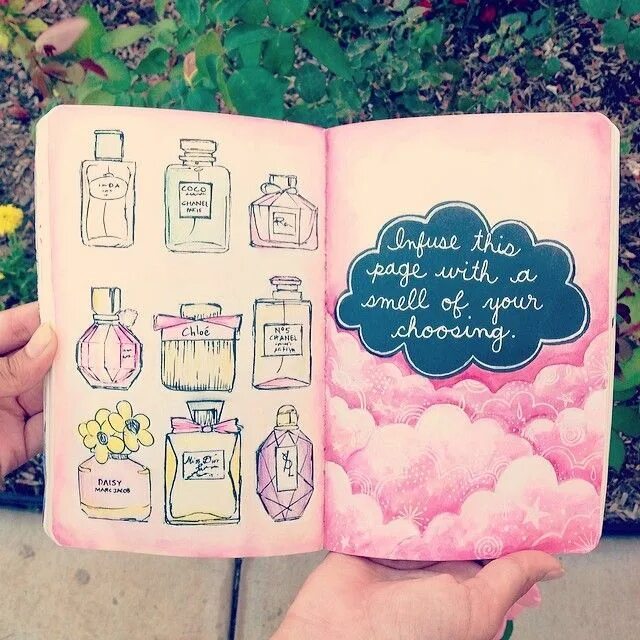 COCO
CHANEL
PARIS
Chloé
Nº5
CHANEL
PARIS
DAISY
MARC JACOB
Miss Dior
YSL
Infuse this
page with a
smell of your
choosing.